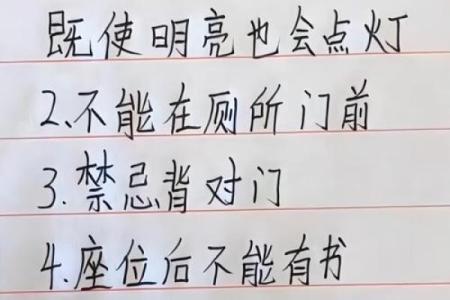 既使明亮也会点灯
2.不能在厕所门前
3.禁忌背对门
4.座位后不能有书